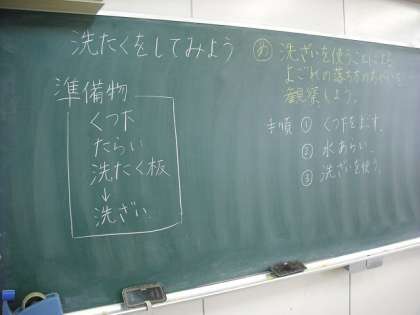 洗たくをしてみよう
準備物
くつ下
たらい
洗たく板
↓
洗ざい
め 洗ざいを使うことによる
よごれの落ち方のちがいを
観察しよう。
手順 ① くつ下をよごす。
② 水あらい。
③ 洗ざいを使う。